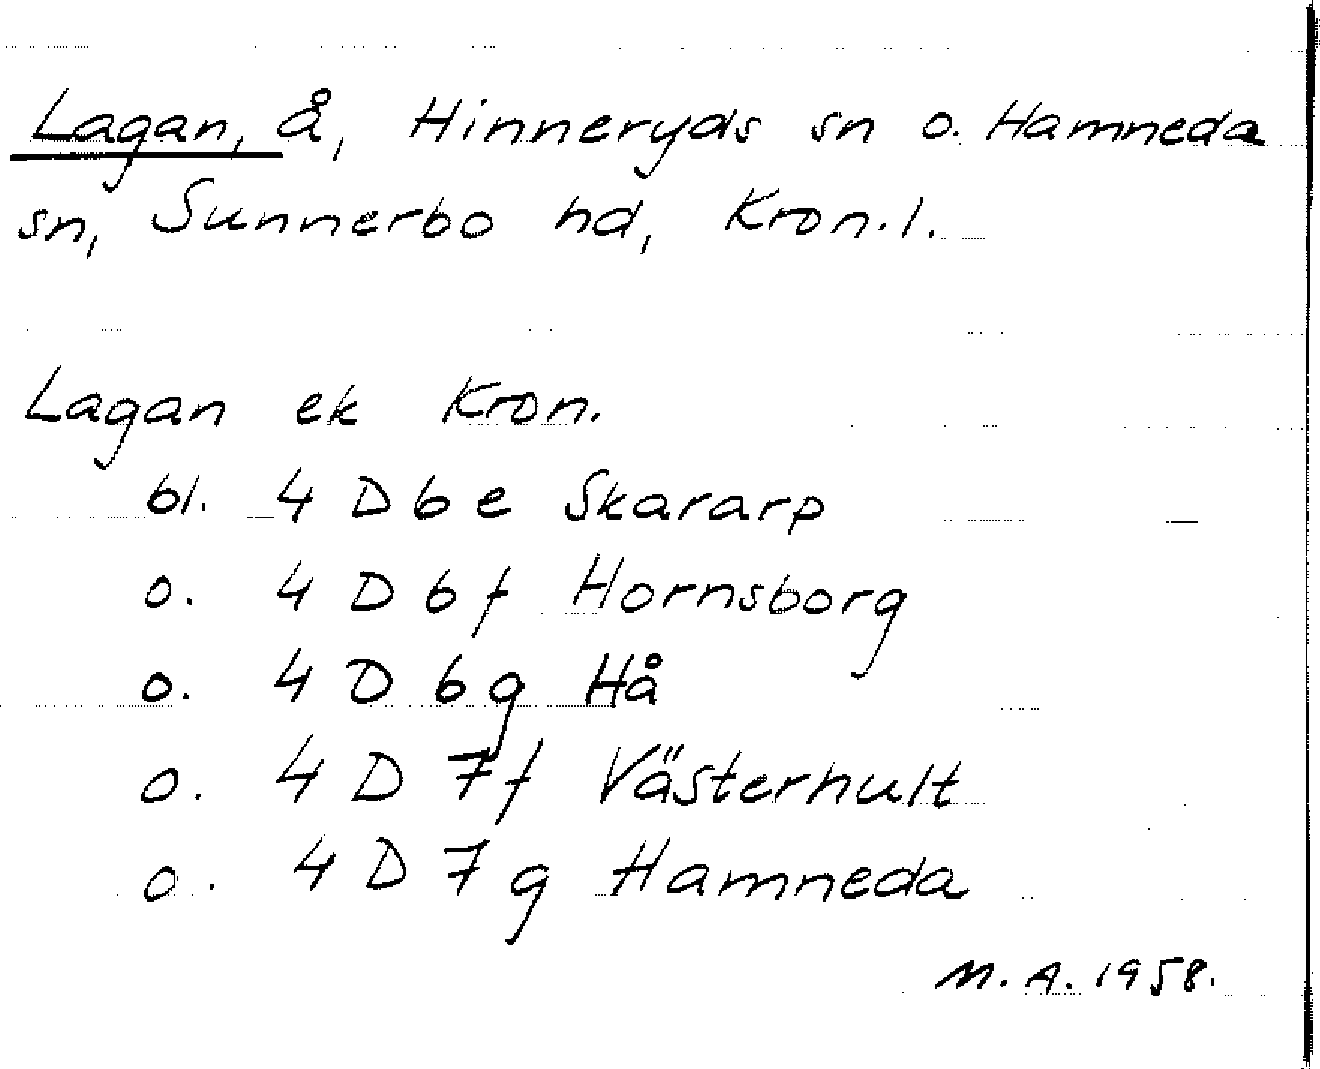 Lagan, å, Hinneryds sn o. Hamneda
sn, Sunnerbo hd, Kron.l.
Lagan ek Kron.
bl. 4 D 6 e Skararp
o. 4 D 6 f Hornsborg
o. 4 D 6 g Hå
o. 4 D 7 f Västerhult
o. 4 D 7 g Hamneda
M.A. 1958.